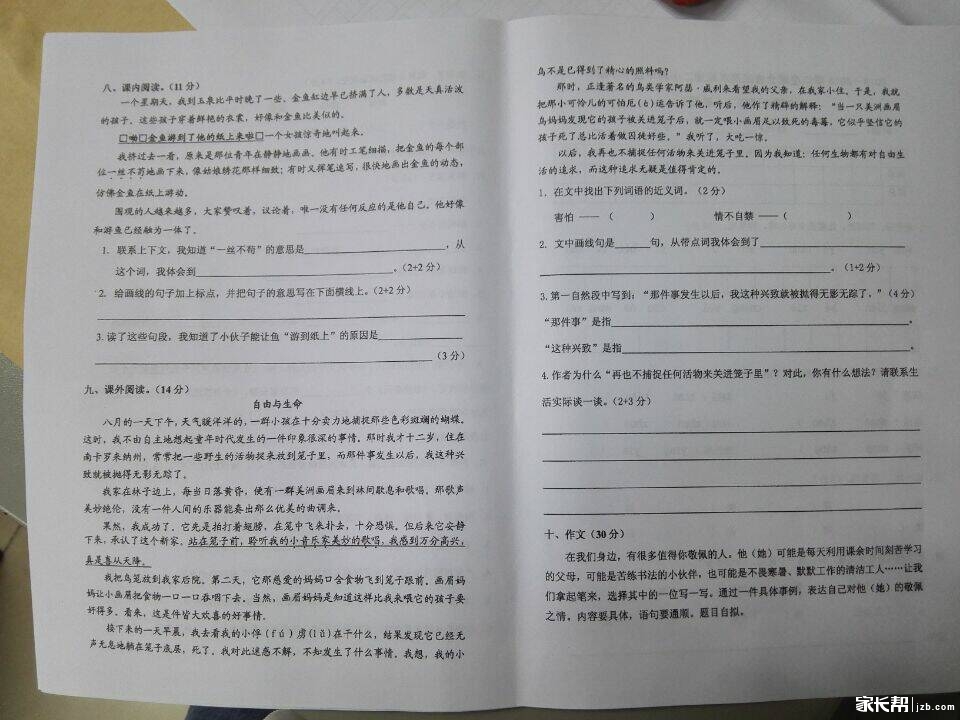 八、课内阅读。(11分)
一个星期天，我到玉泉比平时晚了一些。金鱼缸边早已挤满了人，多数是天真活泼
的孩子。这些孩子穿着鲜艳的衣裳，好像和金鱼比美似的。
□哟□金鱼游到了他的纸上来啦□一个女孩惊奇地叫起来。
我挤过去一看，原来是那位青年在静静地画画。他有时工笔细描，把金鱼的每个部
位一丝不苟地画下来，像姑娘绣花那样细致；有时又挥笔速写，很快地画出金鱼的动态，
仿佛金鱼在纸上游动。
围观的人越来越多，大家赞叹着，议论着，唯一没有任何反应的是他自己。他好像
和游鱼已经融为一体了。
1. 联系上下文，我知道“一丝不苟”的意思是，从
这个词，我体会到。(2+2分)
2. 给画线的句子加上标点，并把句子的意思写在下面横线上。(2+2分)
3.读了这些句段，我知道了小伙子能让鱼“游到纸上”的原因是
(3分)
九、课外阅读。(14分)
自由与生命
八月的一天下午，天气暖洋洋的，一群小孩在十分卖力地捕捉那些色彩斑斓的蝴蝶。
这时，我不由自主地想起童年时代发生的一件印象很深的事情。那时我才十二岁，住在
南卡罗来纳州，常常把一些野生的活物捉来放到笼子里，而那件事发生以后，我这种兴
致就被抛得无影无踪了。
我家在林子边上，每当日落黄昏，便有一群美洲画眉来到林间歇息和歌唱。那歌声
美妙绝伦，没有一件人间的乐器能奏出那么优美的曲调来。
果然，我成功了。它先是拍打着翅膀，在笼中飞来扑去，十分恐惧。但后来它安静
下来，承认了这个新家。站在笼子前，聆听我的小音乐家美妙的歌唱，我感到万分高兴，
真是喜从天降。
我把鸟笼放到我家后院。第二天，它那慈爱的妈妈口含食物飞到笼子跟前。画眉妈
妈让小画眉把食物一口一口吞咽下去。当然，画眉妈妈是知道这样比我来喂它的孩子要
好得多。看来，这是件皆大欢喜的好事情。
接下来的一天早晨，我去看我的小俘(fú)虏(lǔ)在干什么，结果发现它已经无
声无息地躺在笼子底层，死了。我对此迷惑不解，不知发生了什么事情。我想，我的小
鸟不是已得到了精心的照料吗？
那时，正逢著名的鸟类学家阿瑟·威利来看望我的父亲，在我家小住，于是，我就
把那小可怜儿的可怕厄(è)运告诉了他。听后，他作了精辟的解释：“当一只美洲画眉
鸟妈妈发现它的孩子被关进笼子后，就一定喂小画眉足以致死的毒莓，它似乎坚信它的
孩子死了总比活着做囚徒好些。”我听了，大吃一惊。
以后，我再也不捕捉任何活物来关进笼子里。因为我知道：任何生物都有对自由生
活的追求，而这种追求无疑是值得肯定的。
1. 在文中找出下列词语的近义词。(2分)
害怕——（ ） 情不自禁——（ ）
2. 文中画线句是句，从带点词我体会到了
。(1+2分)
3.第一自然段中写到：“那件事发生以后，我这种兴致就被抛得无影无踪了。”(4分)
“那件事”是指。
“这种兴致”是指。
4.作者为什么“再也不捕捉任何活物来关进笼子里”？对此，你有什么想法？请联系生
活实际谈一谈。(2+3分)
十、作文(30分)
在我们身边，有很多值得你敬佩的人。他（她）可能是每天利用课余时间刻苦学习
的父母，可能是苦练书法的小伙伴，也可能是不畏寒暑、默默工作的清洁工人……让我
们拿起笔来，选择其中的一位写一写。通过一件具体事例，表达自己对他（她）的敬佩
之情。内容要具体，语句要通顺。题目自拟。
家长帮 jzb.com